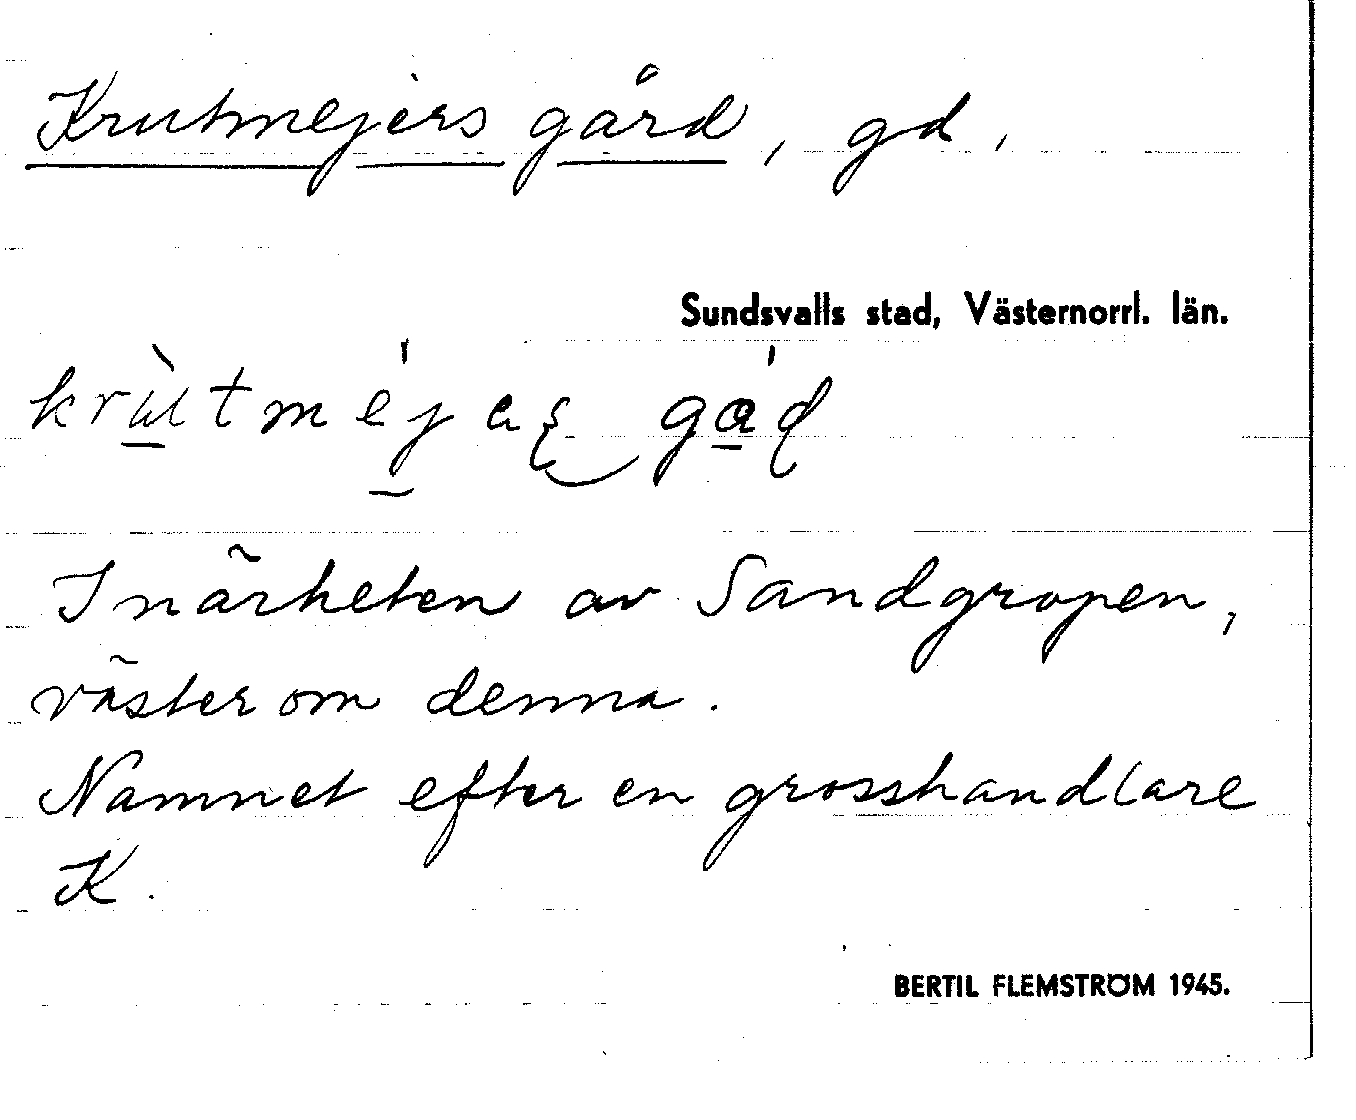 Krutmejers gård, gd.
Sundsvalls stad, Västernorrl. län.
I närheten av Sandgropen,
väster om denna.
Namnet efter en grosshandlare
K.
BERTIL FLEMSTRÖM 1945.